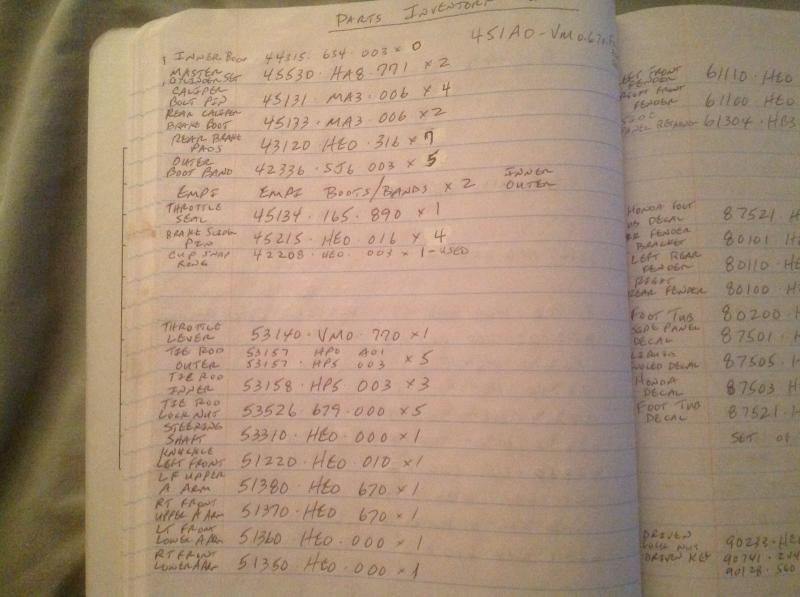 PARTS INVENTORY
451A0-VM0.670.
INNER BOOT 44315. 634. 003 x 0
MASTER
CYLINDER SET 45530. HA8. 771 x 2
CALIPER
BOLT PIN 45131. MA3. 006 x 4
REAR CALIPER
BRAKE BOOT 45133. MA3. 006 x 2
REAR BRAKE
PADS 43120. HE0. 316 x 7
OUTER
BOOT BAND 42336. SJ6 003 x 5
EMPI EMPI BOOTS/BANDS x 2 INNER
OUTER
THROTTLE
SEAL 45134. 165. 890 x 1
BRAKE SLIDER
PIN 45215. HE0. 016 x 4
CUP SNAP
RING 42208. HE0. 003 x 1-USED
THROTTLE
LEVER 53140. VM0. 770 x 1
TIE ROD 53157 HP0 A01
OUTER 53157. HP5 003 x 5
TIE ROD
INNER 53158. HP5. 003 x 3
TIE ROD
LOCK NUT 53526 679.000 x 5
STEERING
SHAFT 53310. HE0. 000 x 1
KNUCKLE
LEFT FRONT 51220. HE0. 010 x 1
LF UPPER
A ARM 51380. HE0 670 x 1
RT FRONT
UPPER A ARM 51370. HE0 670 x 1
LT FRONT
LOWER A ARM 51360. HE0. 000 x 1
RT FRONT
LOWER A ARM 51350. HE0. 000 x 1
LEFT FRONT
FENDER 61110. HE0
RIGHT FRONT
FENDER 61100. HE0
61304. HB3
HONDA FOOT
DECAL 87521. H
FENDER
BRACKET 80101. H
LEFT REAR
FENDER 80110. HE
RIGHT
REAR FENDER 80100. HE
FOOT TUB 80200
SIDE PANEL
DECAL 87501.
DECAL 87505. H
HONDA
DECAL 87503 H
FOOT TUB
DECAL 87521. H
SET 01
DRIVEN
LOCK NUT 90233. HE0
DRIVEN KEY 90741.
90128.